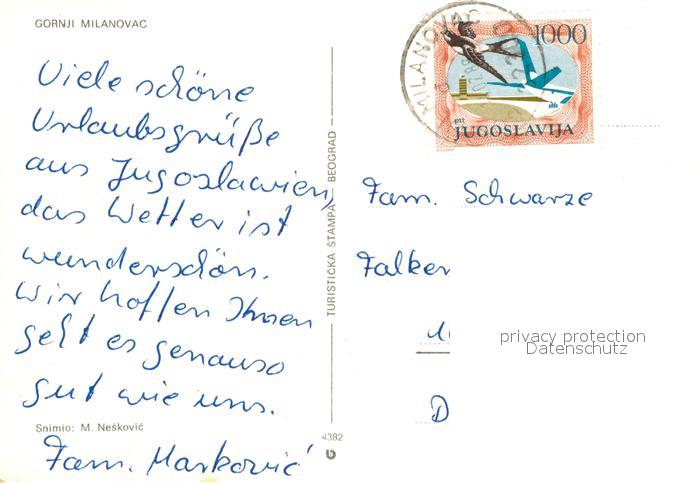 GORNJI MILANOVAC
Viele schöne
Urlaubsgrüße
aus Jugoslawien,
das Wetter ist
wunderschön.
Wir hoffen Ihnen
geht es genauso
gut wie uns.
Snimio: M. Nešković
Fam. Marković
TURISTIČKA ŠTAMPA BEOGRAD
4382
MILANOVAC
1000
JUGOSLAVIJA
Fam. Schwarze
Falken
privacy protection
Datenschutz
D